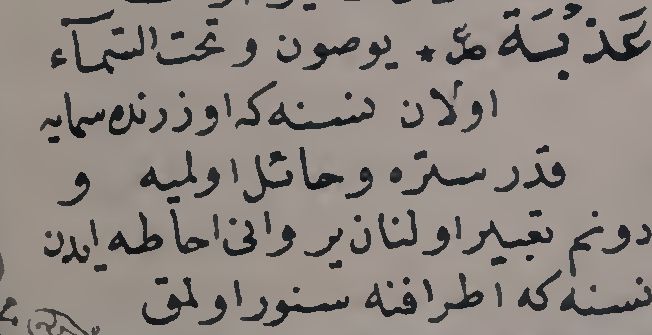 عَذْبَة * يوصون و تحت السّمآء
اولان نسنه كه اوزرنده سمايه
قدر ستره و حائل اولميه و
دونم تعبير اولنان ير و انى احاطه ايدن
نسنه كه اطرافنه سنور اولمق